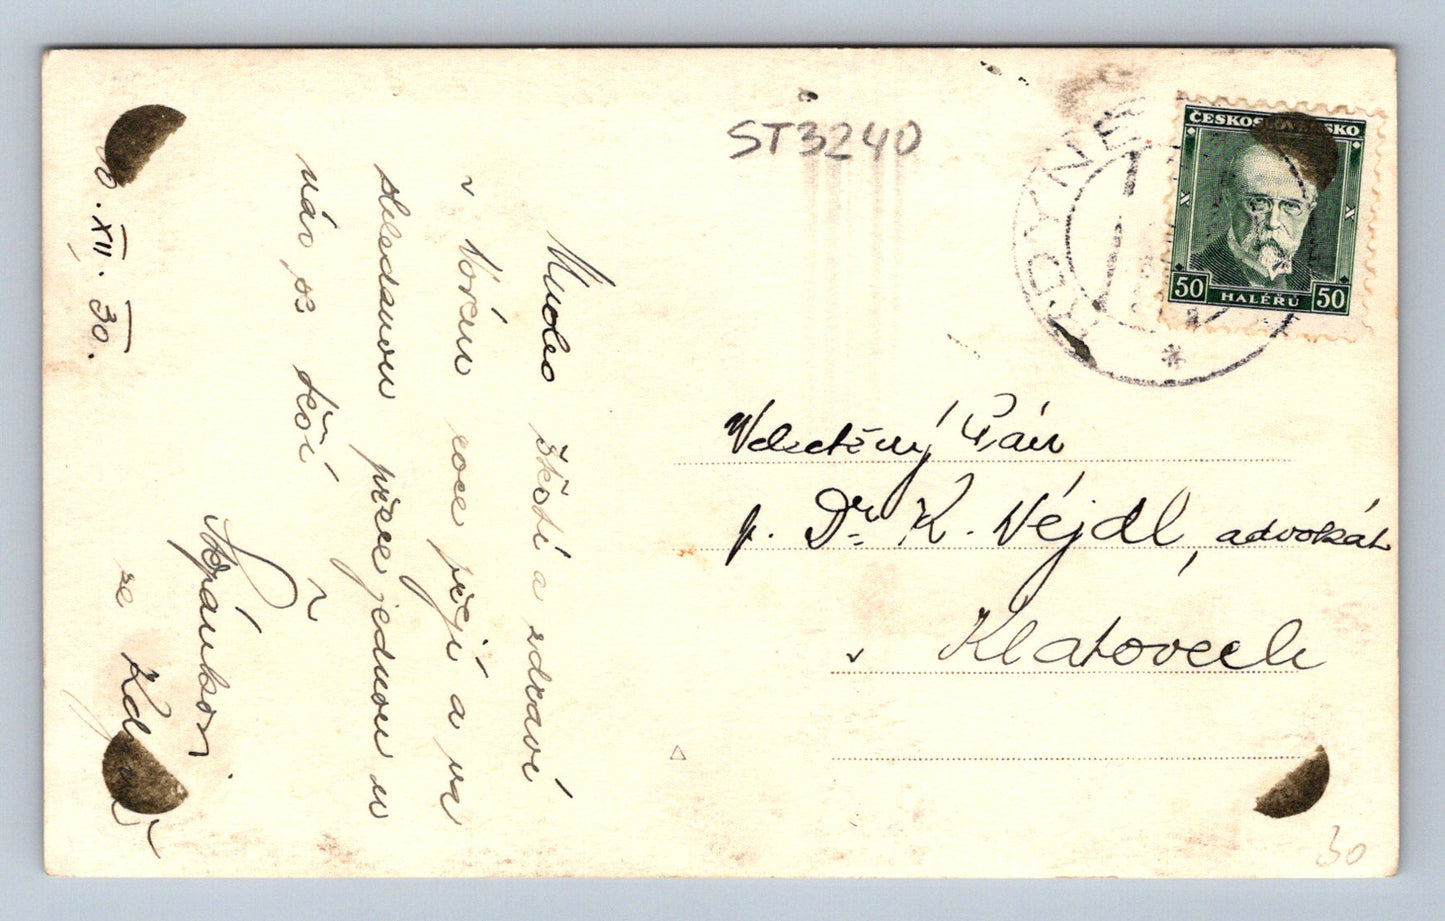 ST3240
KDYNĚ
ČESKOSLOVENSKO
50 HALÉŘŮ 50
Mnoho štěstí a zdraví
v Novém roce přeji a na
shledanou přece jednou u
nás se těší
ze Kdyně
XII. 30.
Velectěný Pán
p. Dr. K. Nejdl, advokát
v Klatovech
30